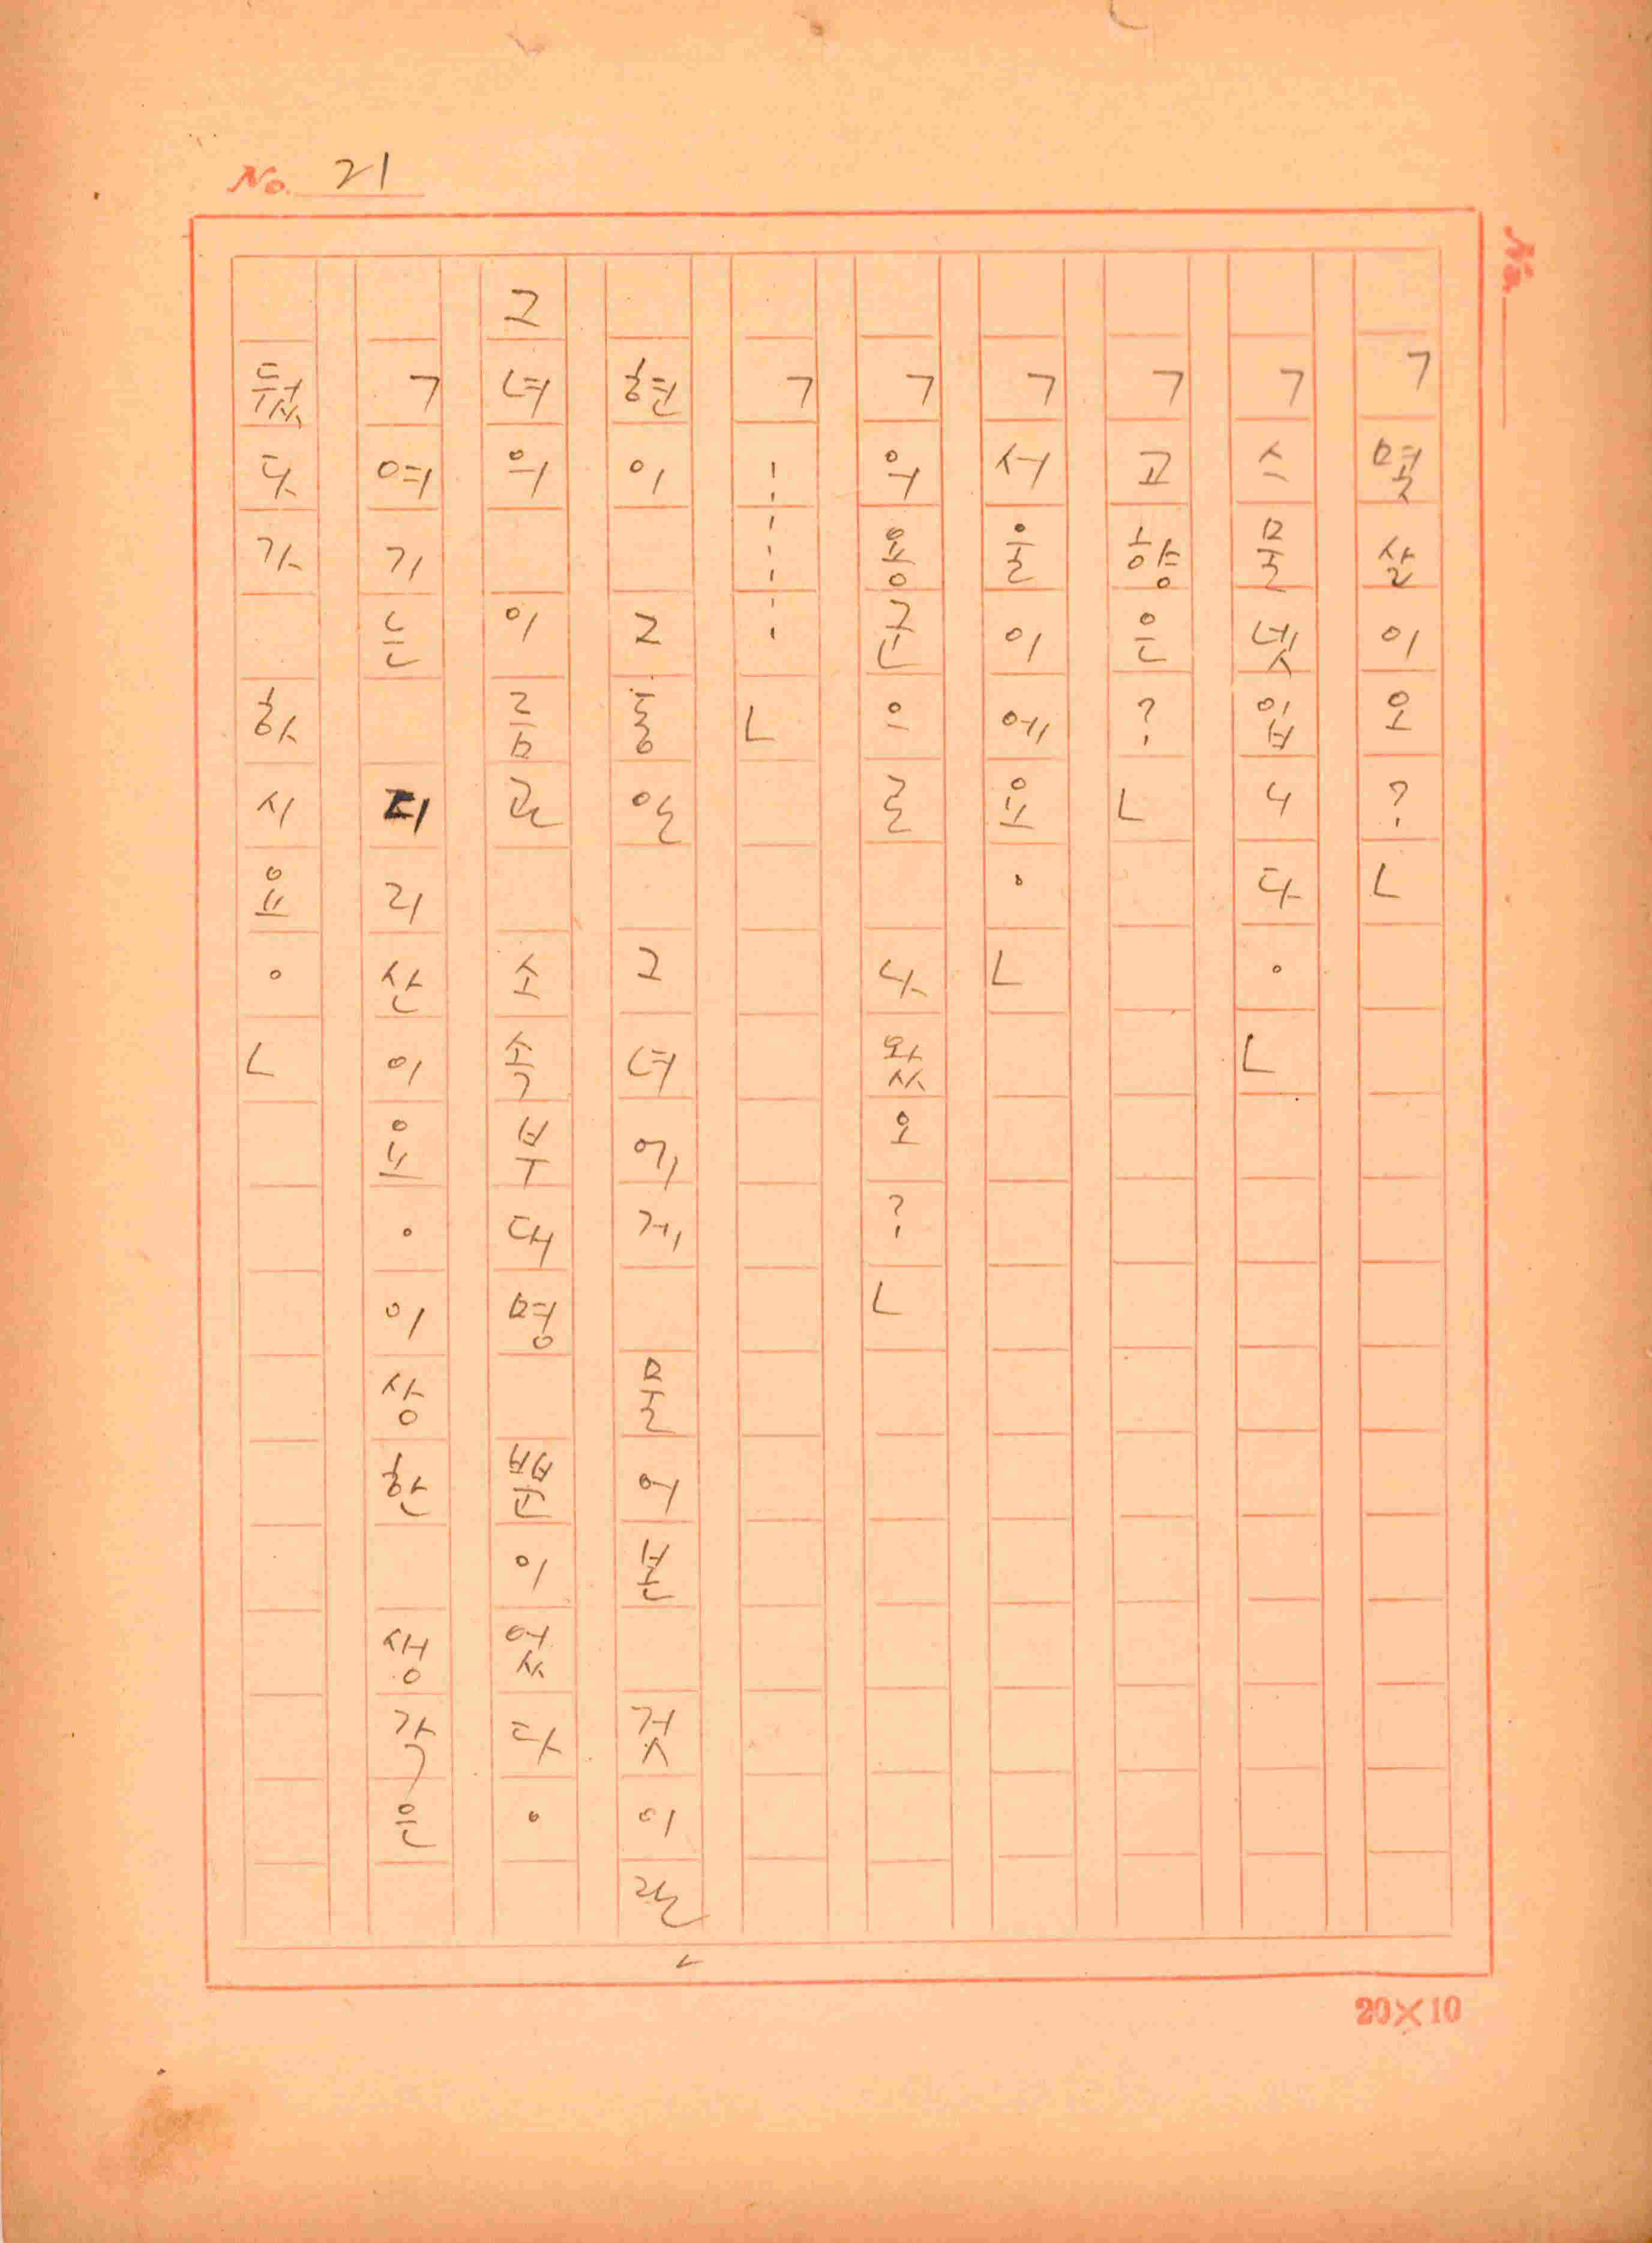 No. 21
No.
「몇살이오?」
「스물넷입니다。」
「고향은?」
「서울이에요。」
「의용군으로 나왔오?」
「………」
현이 그동안 그녀에게 물어본 것이란
그녀의 이름과 소속부대명 뿐이었다。
「여기는 지리산이요。이상한 생각은
뒀다가 하시요。」
20×10